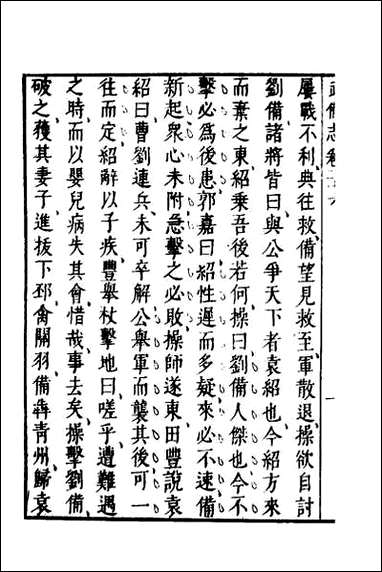 武備志卷二十六
屢戰不利典往救備望見救至軍散退操欲自討
劉備諸將皆曰與公爭天下者袁紹也今紹方來
而棄之東紹乘吾後若何操曰劉備人傑也今不
擊必為後患郭嘉曰紹性遲而多疑來必不速備
新起衆心未附急擊之必敗操師遂東田豐說袁
紹曰曹劉連兵未可卒解公舉軍而襲其後可一
往而定紹辭以子疾豐舉杖擊地曰嗟乎遭難遇
之時而以嬰兒病失其會惜哉事去矣操擊劉備
破之獲其妻子進拔下邳禽關羽備犇青州歸袁